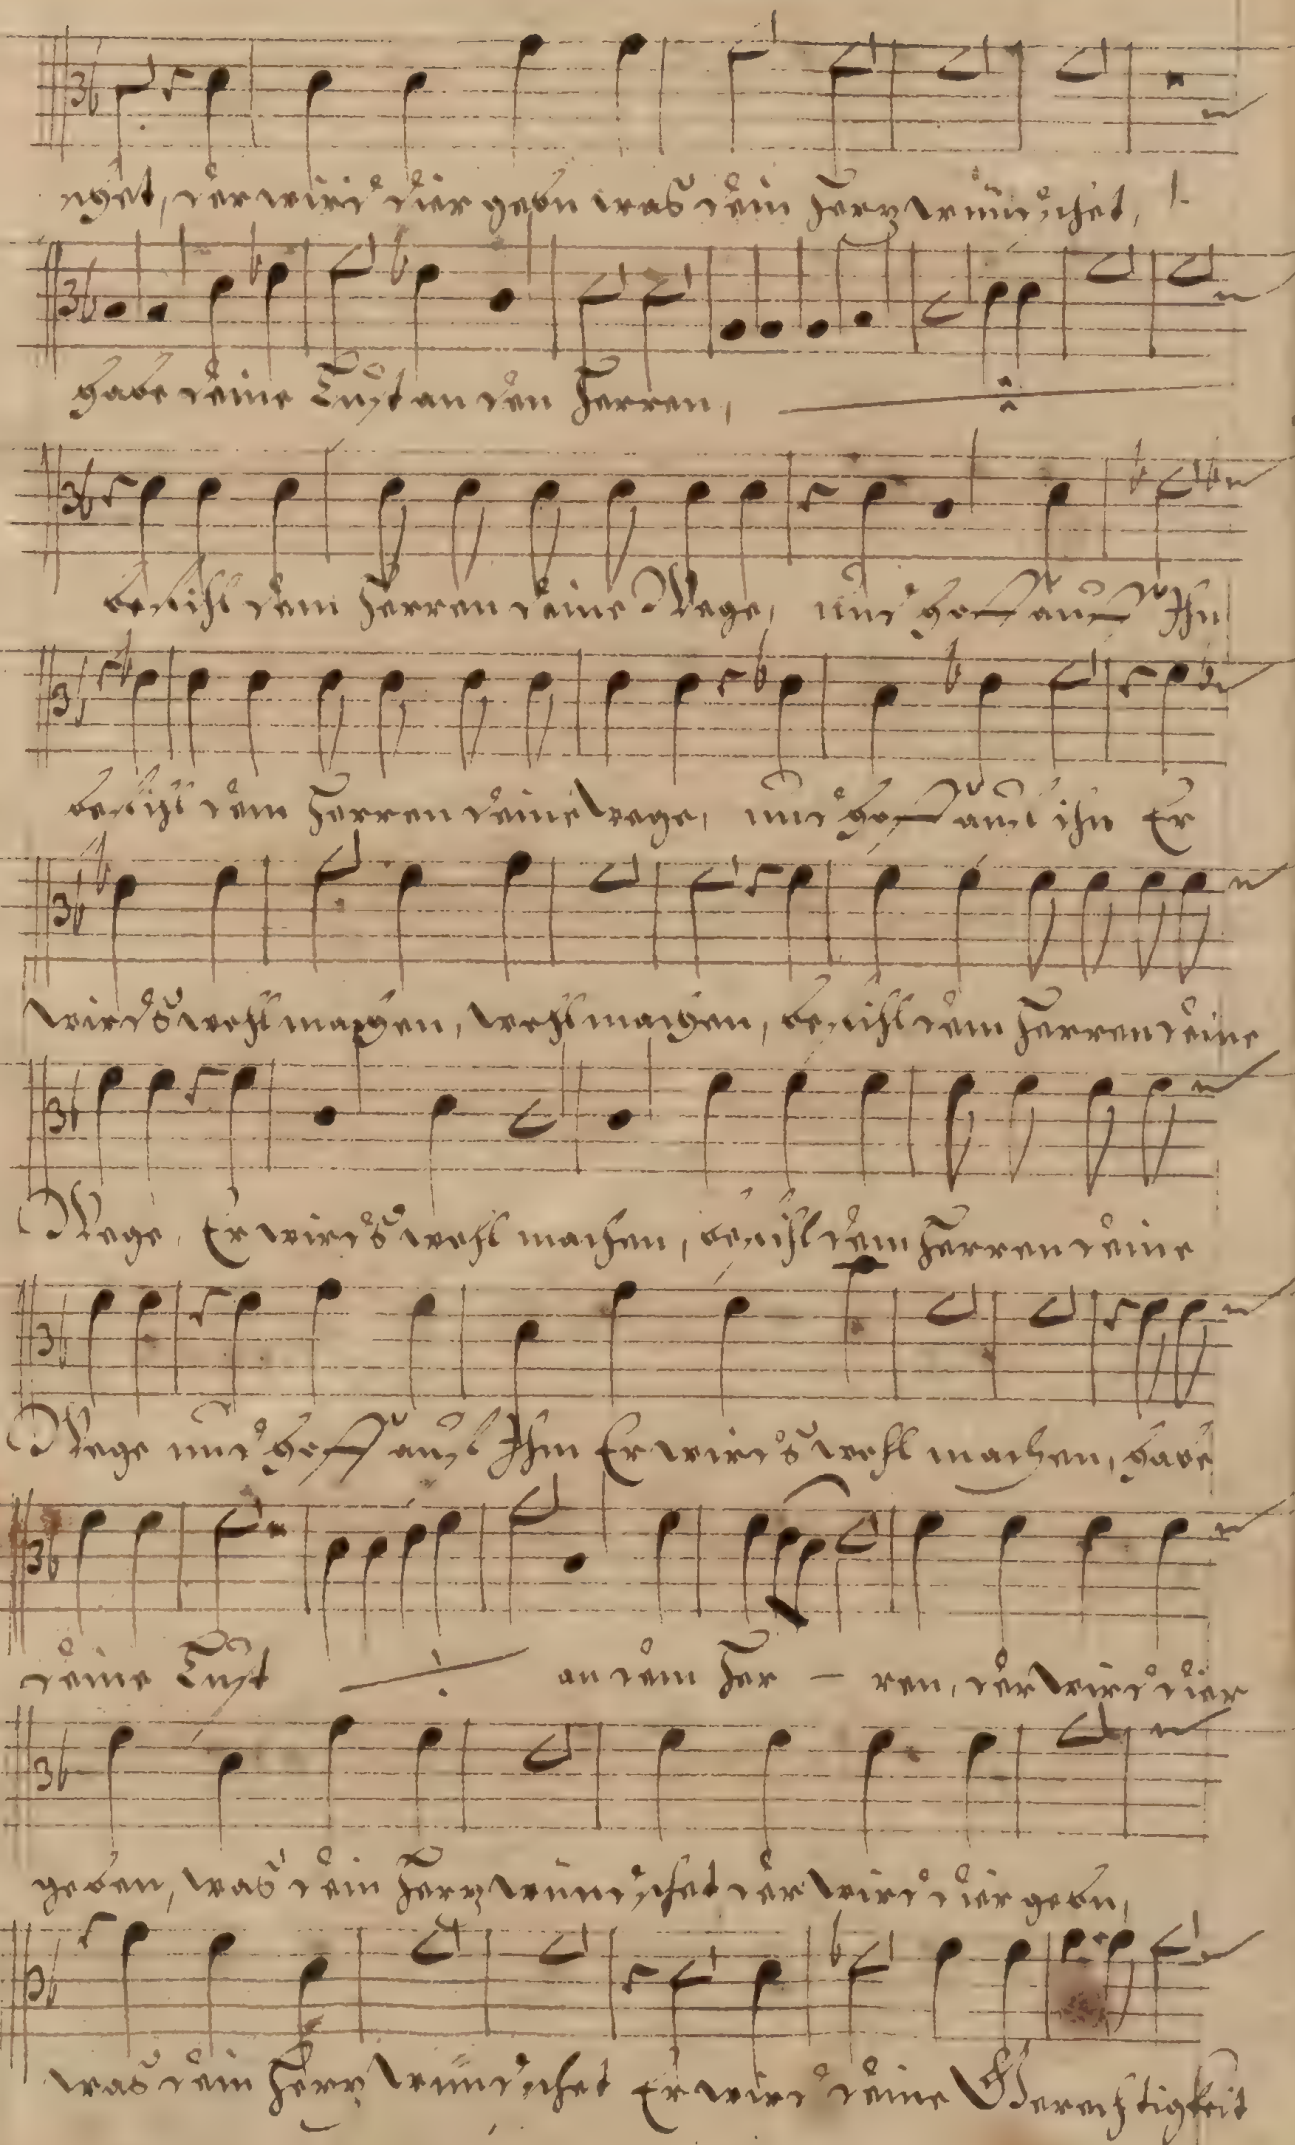 nget, der wird dier gebn was dein Herz wündschet,
habe deine Lust an den Herren,
befihl dem Herren deine Wege, und hoff auff Ihn
befihl dem Herren deine wege, und hoff auff ihn Er
wirds wohl machen, wohl machen, befihl dem Herren deine
Wege, Er wirds wohl machen, befihl dem Herren deine
Wege und hoff auff Ihm Er wird's wohl machen, habe
deine Lust an dem Her – ren, der wird dier
geben, was dein Herz wündschet der wird dier gebn,
was dein Herz wündschet Er wird deine Gerechtigkeit